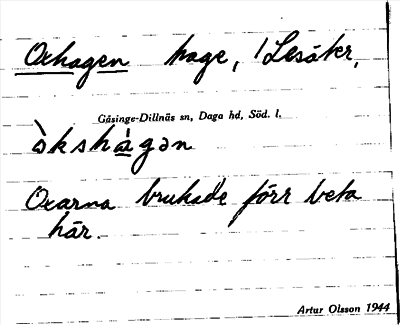 Oxhagen hage, 1 Lesåker,
Gåsinge-Dillnäs sn, Daga hd, Söd. l.
òkshàgən
Oxarna brukade förr beta
här.
Artur Olsson 1944